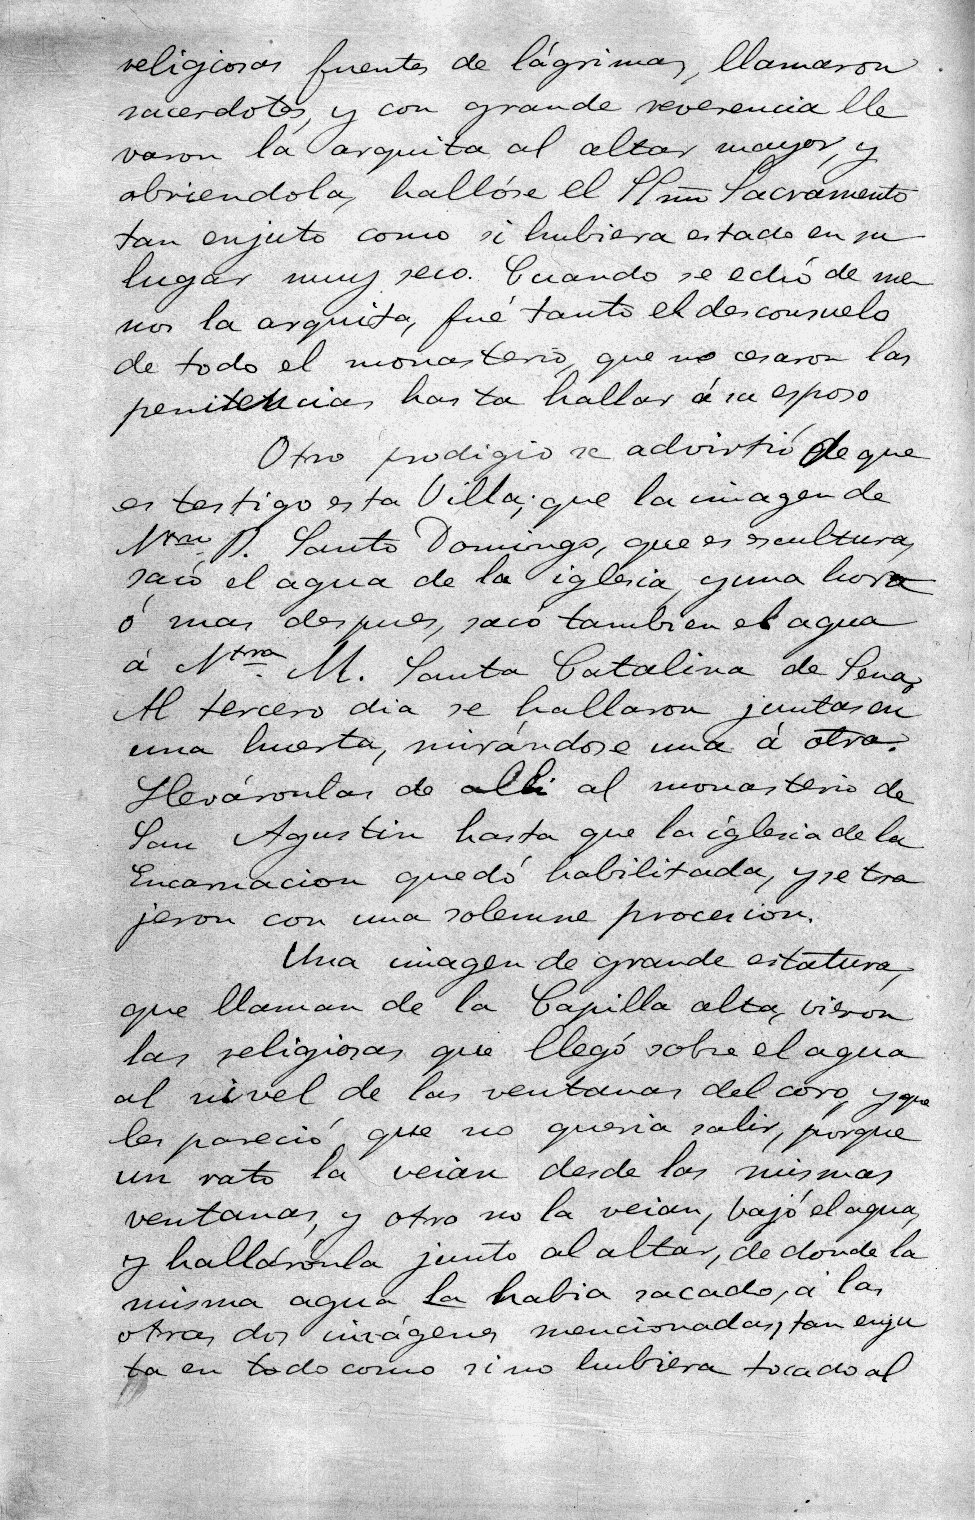 religiosas fuentes de lágrimas, llamaron
sacerdotes, y con grande reverencia lle
varon la arquita al altar mayor, y
abriendola, hallóse el SSmo Sacramento
tan enjuto como si hubiera estado en su
lugar muy seco. Cuando se echó de me
nos la arquita, fué tanto el desconsuelo
de todo el monasterio, que no cesaron las
penitencias hasta hallar á su esposo
Otro prodigio se advirtió de que
es testigo esta Villa; que la imagen de
Ntro P. Santo Domingo, que es escultura,
sacó el agua de la iglesia, y una hora
ó mas despues, sacó tambien el agua
á Ntra M. Santa Catalina de Sena,
Al tercero dia se hallaron juntas en
una huerta, mirándose una á otra.
Lleváronlas de alli al monasterio de
San Agustin hasta que la iglesia de la
Encarnacion quedó habilitada, y se tra
jeron con una solemne procesion.
Una imagen de grande estatura,
que llaman de la Capilla alta, vieron
las religiosas que llegó sobre el agua
al nivel de las ventanas del coro, y que
les pareció que no queria salir, porque
un rato la veian desde las mismas
ventanas, y otro no la veian, bajó el agua,
y halláronla junto al altar, de donde la
misma agua la habia sacado, á las
otras dos imágenes mencionadas, tan enju
ta en todo como si no hubiera tocado al